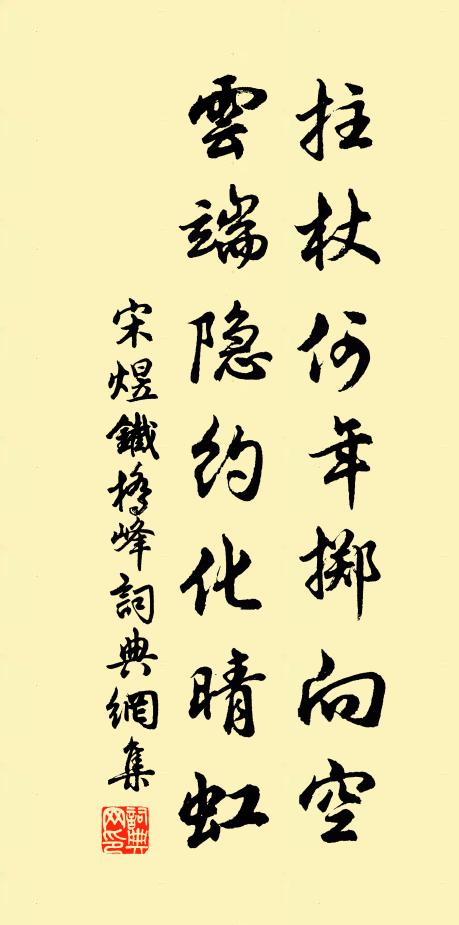 拄杖何年掷向空
雲端隐约化晴虹
宋煜鐵橋峰詞典網集
詞典網印